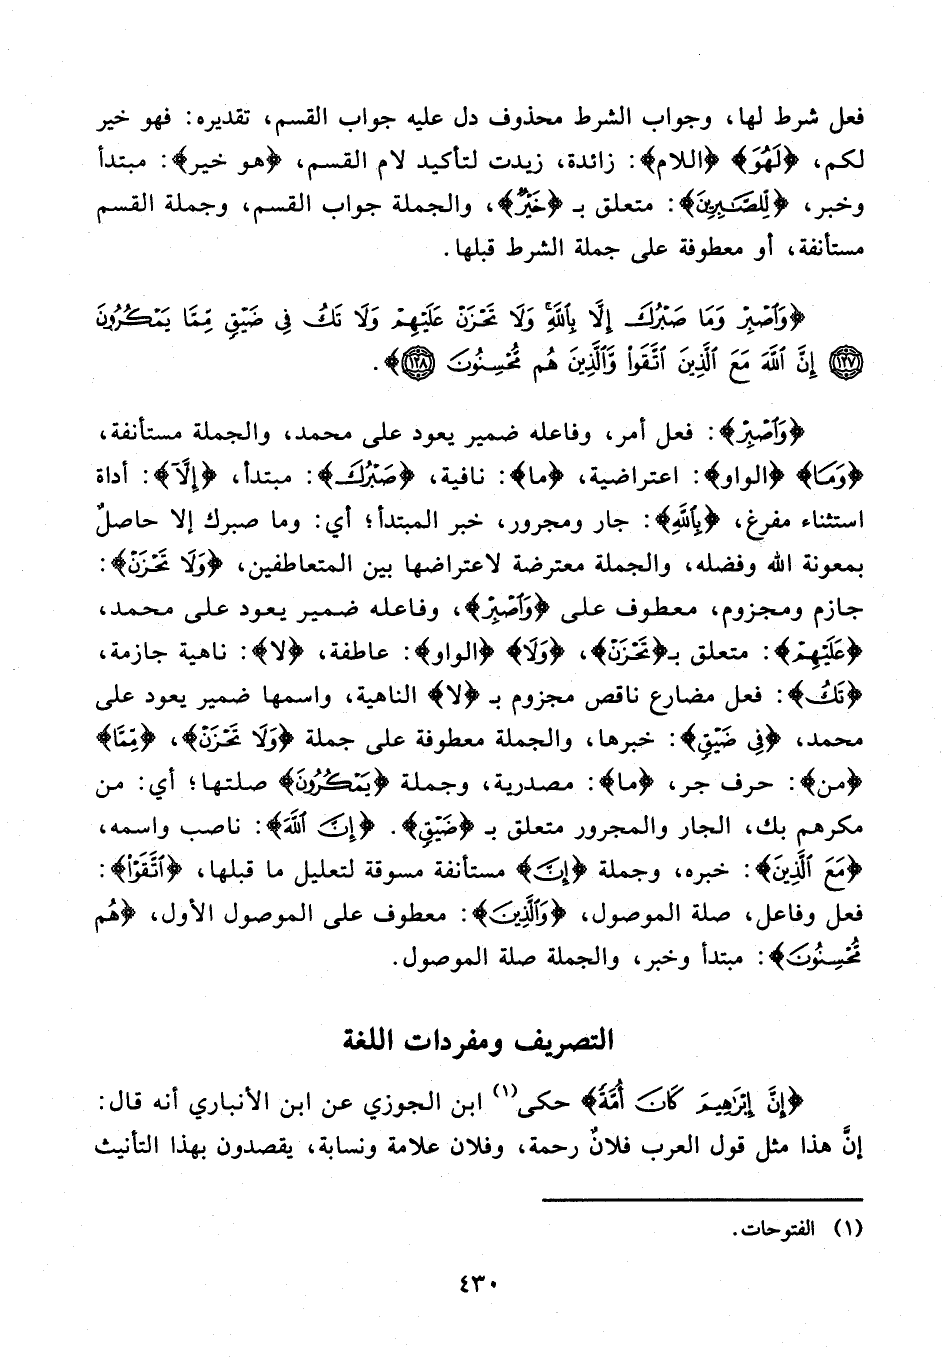 فعل شرط لها، وجواب الشرط محذوف دل عليه جواب القسم، تقديره: فهو خير
لكم، ﴿لَهُوَ﴾ ﴿اللام﴾: زائدة، زيدت لتأكيد لام القسم، ﴿هو خير﴾: مبتدأ
وخبر، ﴿لِلصَّـٰبِرِينَ﴾: متعلق بـ ﴿خَيْرٌ﴾، والجملة جواب القسم، وجملة القسم
مستأنفة، أو معطوفة على جملة الشرط قبلها.
﴿وَٱصْبِرْ وَمَا صَبْرُكَ إِلَّا بِٱللَّهِ وَلَا تَحْزَنْ عَلَيْهِمْ وَلَا تَكُ فِى ضَيْقٍ مِّمَّا يَمْكُرُونَ
﴿١٢٧﴾ إِنَّ ٱللَّهَ مَعَ ٱلَّذِينَ ٱتَّقَوا۟ وَّٱلَّذِينَ هُم مُّحْسِنُونَ ﴿١٢٨﴾﴾.
﴿وَٱصْبِرْ﴾: فعل أمر، وفاعله ضمير يعود على محمد، والجملة مستأنفة،
﴿وَمَا﴾ ﴿الواو﴾: اعتراضية، ﴿ما﴾: نافية، ﴿صَبْرُكَ﴾: مبتدأ، ﴿إِلَّآ﴾: أداة
استثناء مفرغ، ﴿بِٱللَّهِ﴾: جار ومجرور، خبر المبتدأ؛ أي: وما صبرك إلا حاصلٌ
بمعونة الله وفضله، والجملة معترضة لاعتراضها بين المتعاطفين، ﴿وَلَا تَحْزَنْ﴾:
جازم ومجزوم، معطوف على ﴿وَٱصْبِرْ﴾، وفاعله ضمير يعود على محمد،
﴿عَلَيْهِمْ﴾: متعلق بـ﴿تَحْزَنْ﴾، ﴿وَلَا﴾ ﴿الواو﴾: عاطفة، ﴿لا﴾: ناهية جازمة،
﴿تَكُ﴾: فعل مضارع ناقص مجزوم بـ ﴿لا﴾ الناهية، واسمها ضمير يعود على
محمد، ﴿فِى ضَيْقٍ﴾: خبرها، والجملة معطوفة على جملة ﴿وَلَا تَحْزَنْ﴾، ﴿مِّمَّا﴾
﴿من﴾: حرف جر، ﴿ما﴾: مصدرية، وجملة ﴿يَمْكُرُونَ﴾ صلتها؛ أي: من
مكرهم بك، الجار والمجرور متعلق بـ ﴿ضَيْقٍ﴾. ﴿إِنَّ ٱللَّهَ﴾: ناصب واسمه،
﴿مَعَ ٱلَّذِينَ﴾: خبره، وجملة ﴿إِنَّ﴾ مستأنفة مسوقة لتعليل ما قبلها، ﴿ٱتَّقَوْا۟﴾:
فعل وفاعل، صلة الموصول، ﴿وَٱلَّذِينَ﴾: معطوف على الموصول الأول، ﴿هُم
مُّحْسِنُونَ﴾: مبتدأ وخبر، والجملة صلة الموصول.
التصريف ومفردات اللغة
﴿إِنَّ إِبْرَٰهِيمَ كَانَ أُمَّةً﴾ حكى(١) ابن الجوزي عن ابن الأنباري أنه قال:
إنَّ هذا مثل قول العرب فلانٌ رحمة، وفلان علامة ونسابة، يقصدون بهذا التأنيث
(١) الفتوحات.
٤٣٠